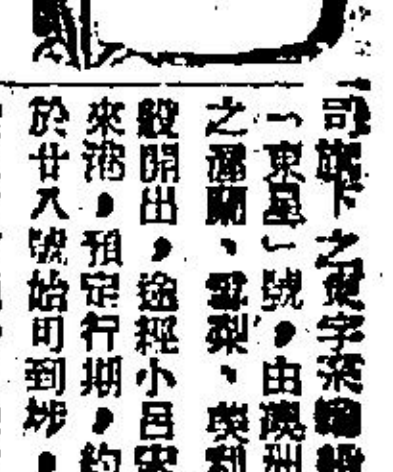 司旗下之東字系輪船
「東星」號，由澳洲
之潘蘭、雪梨、璞利
般開出，途經小呂宋
來港，預定行期，約
於廿八號始可到埗。